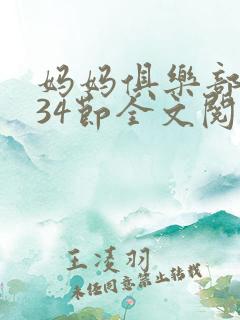 妈妈俱樂部
34节全文閱
王凌羽
未经同意禁止转载